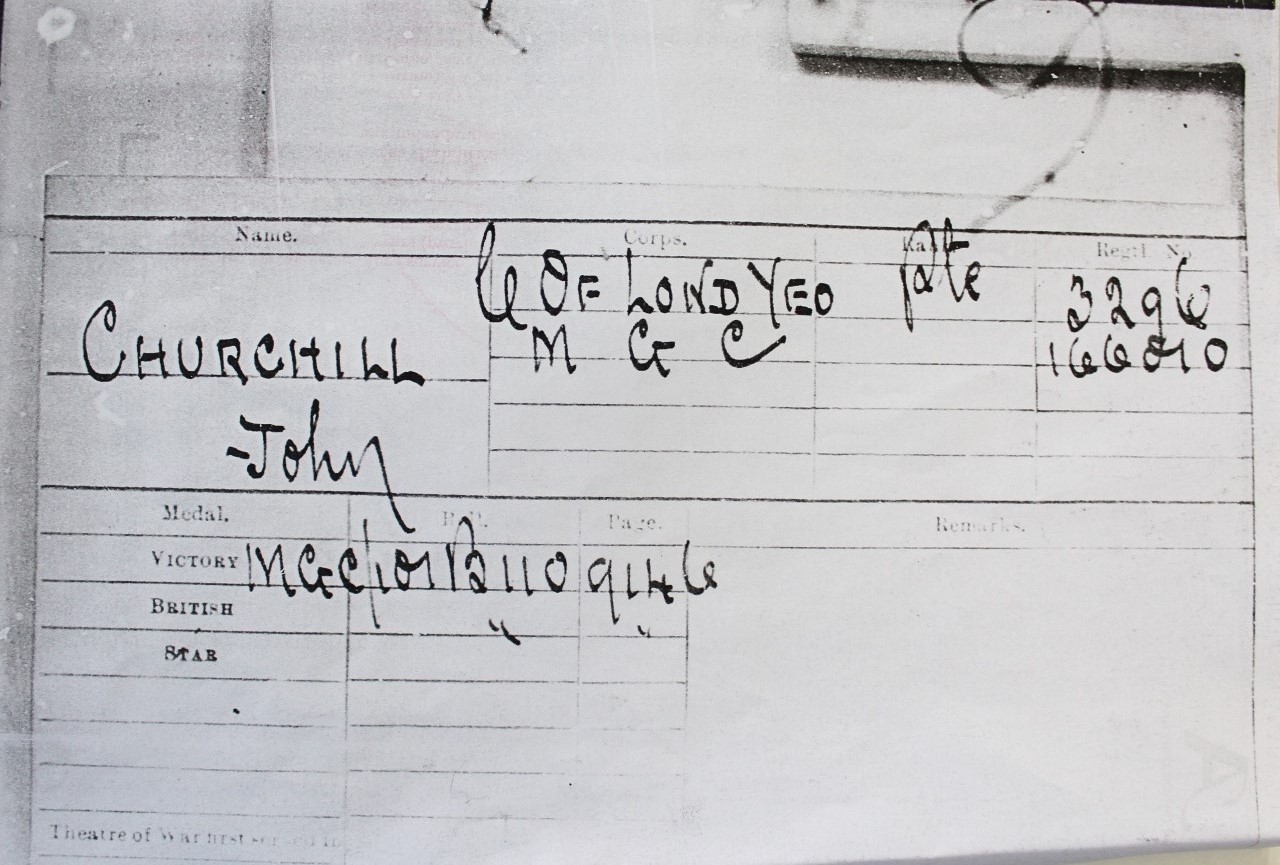 Name. Corps. Rank Regtl. No.
C OF LOND YEO Pte 3296
CHURCHILL M G C 166010
John
Medal. Roll. Page. Remarks.
VICTORY MGC/101B110 9146
BRITISH " "
STAR
Theatre of War first served in